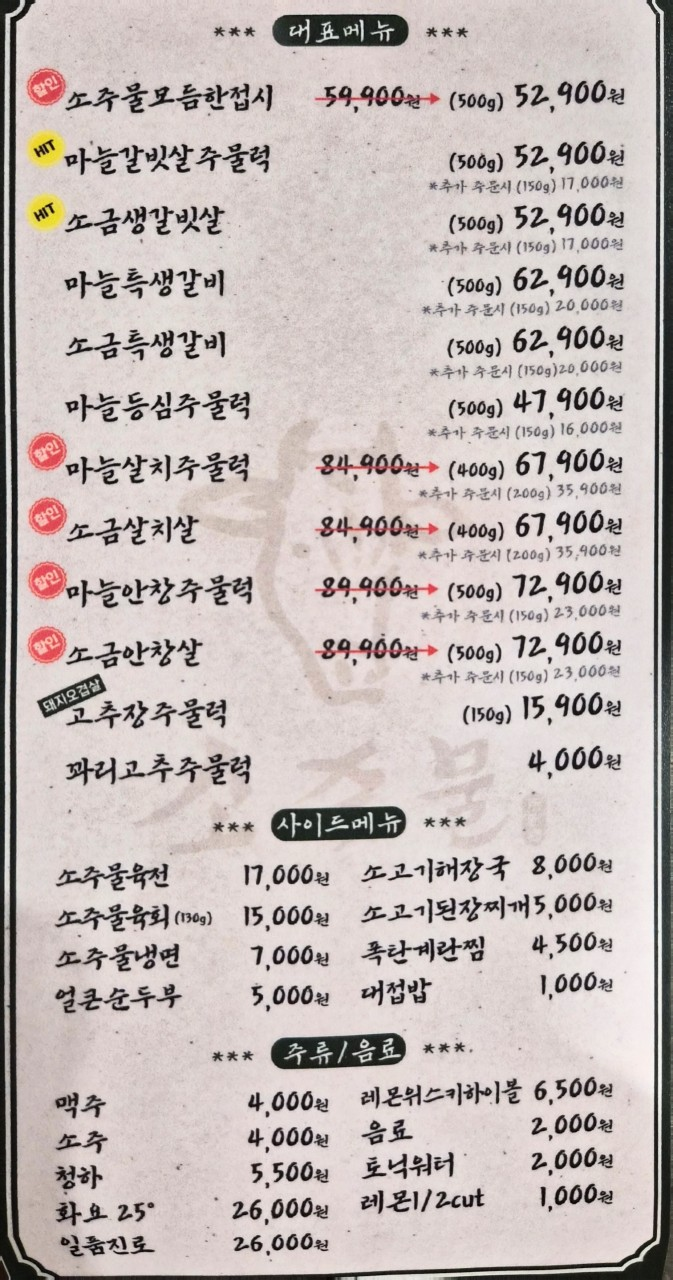 *** 대표메뉴 ***
할인 소주물모듬한접시 59,900원 (500g) 52,900원
HIT 마늘갈빗살주물럭 (500g) 52,900원
*추가 주문시 (150g) 17,000원
HIT 소금생갈빗살 (500g) 52,900원
*추가 주문시 (150g) 17,000원
마늘특생갈비 (500g) 62,900원
*추가 주문시 (150g) 20,000원
소금특생갈비 (500g) 62,900원
*추가 주문시 (150g)20,000원
마늘등심주물럭 (500g) 47,900원
*추가 주문시 (150g) 16,000원
할인 마늘살치주물럭 84,900원 (400g) 67,900원
*추가 주문시 (200g) 35,900원
할인 소금살치살 84,900원 (400g) 67,900원
*추가 주문시 (200g) 35,900원
할인 마늘안창주물럭 89,900원 (500g) 72,900원
*추가 주문시 (150g) 23,000원
할인 소금안창살 89,900원 (500g) 72,900원
*추가 주문시 (150g) 23,000원
돼지오겹살
고추장주물럭 (150g) 15,900원
꽈리고추주물럭 4,000원
소주물
*** 사이드메뉴 ***
소주물육전 17,000원 소고기해장국 8,000원
소주물육회 (130g) 15,000원 소고기된장찌개 5,000원
소주물냉면 7,000원 폭탄계란찜 4,500원
얼큰순두부 5,000원 대접밥 1,000원
*** 주류/음료 ***
맥주 4,000원 레몬위스키하이볼 6,500원
소주 4,000원 음료 2,000원
청하 5,500원 토닉워터 2,000원
화요 25° 26,000원 레몬1/2cut 1,000원
일품진로 26,000원